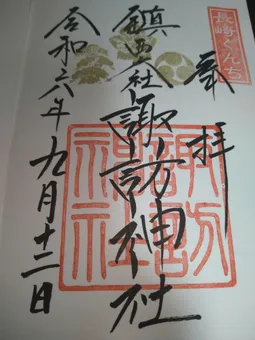 長崎くんち
奉拝
鎮西大社諏訪神社
諏訪神社
令和六年九月十二日